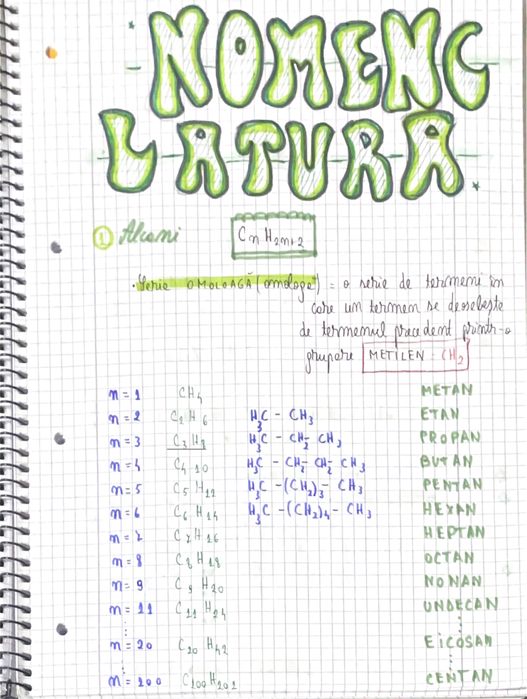 NOMENC
LATURĂ
1 Alcani CnH2n+2
· Serie OMOLOAGĂ (omologe) = o serie de termeni în
care un termen se deosebește
de termenul precedent printr-o
grupare METILEN : CH2
n = 1 CH4 METAN
n = 2 C2H6 H3C - CH3 ETAN
n = 3 C3H8 H3C - CH2 - CH3 PROPAN
n = 4 C4 10 H3C - CH2 - CH2 - CH3 BUTAN
n = 5 C5H12 H3C - (CH2)3 - CH3 PENTAN
n = 6 C6H14 H3C - (CH2)4 - CH3 HEXAN
n = 7 C7H16 HEPTAN
n = 8 C8H18 OCTAN
n = 9 C9H20 NONAN
n = 11 C11H24 UNDECAN
n = 20 C20H42 EICOSAN
n = 100 C100H202 CENTAN